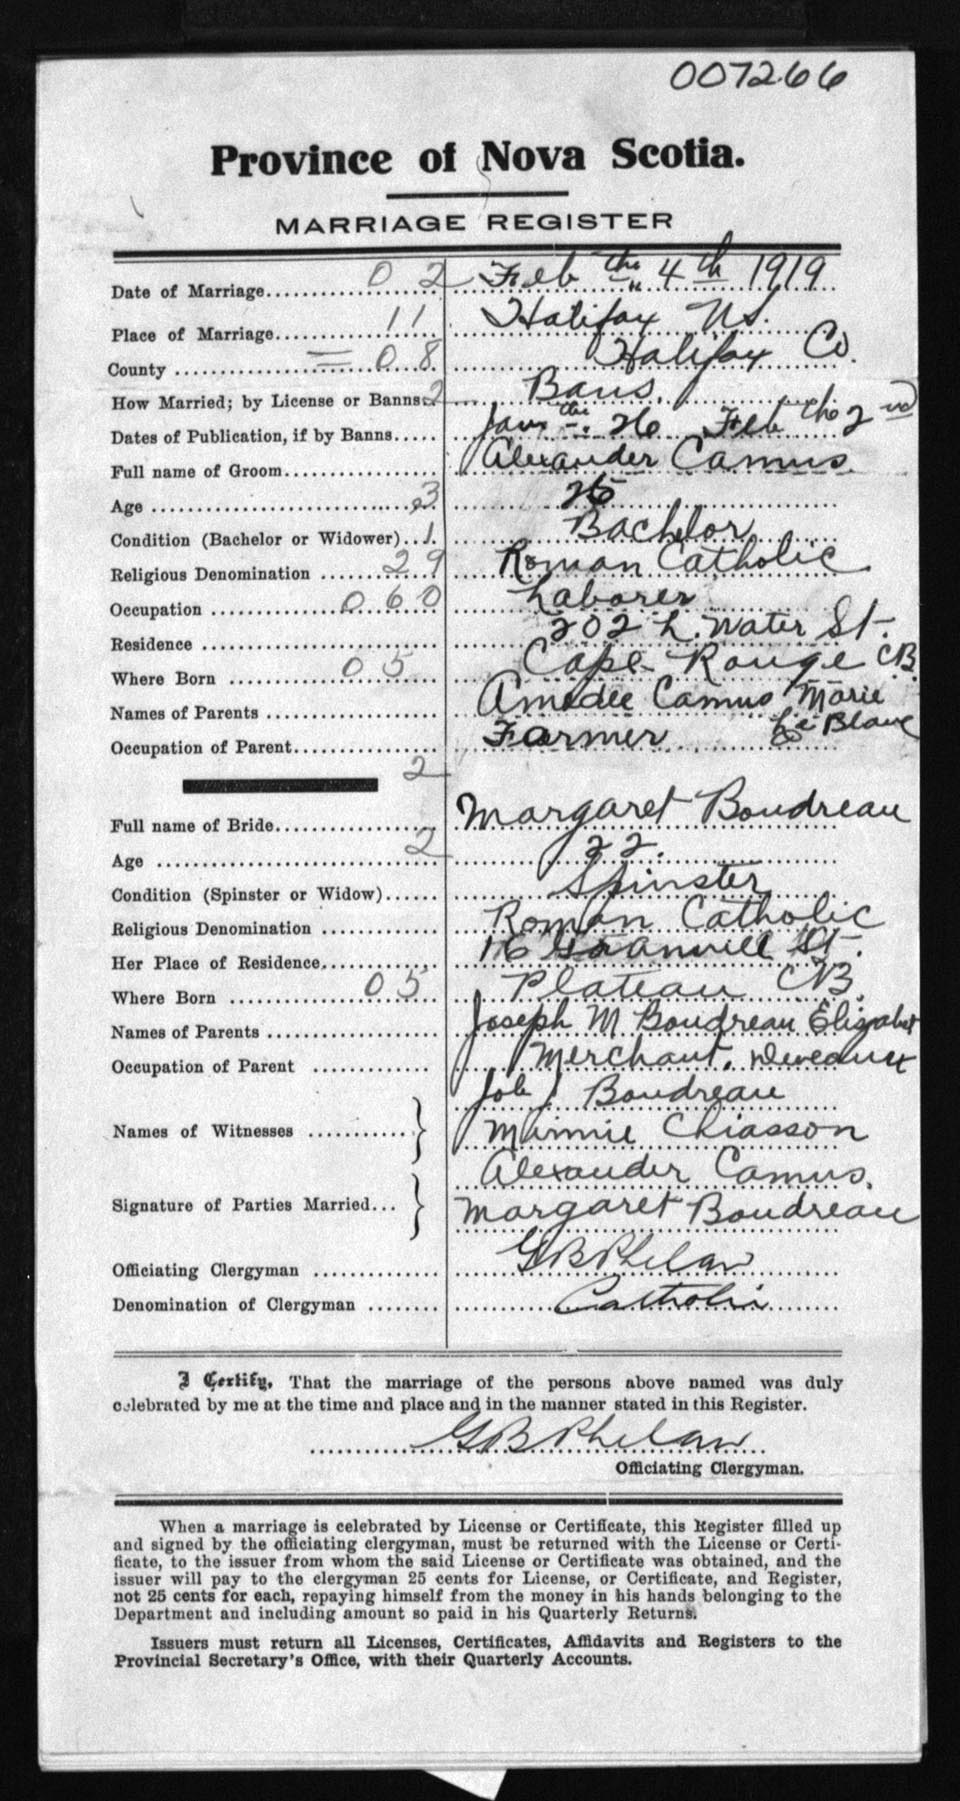 007266
Province of Nova Scotia.
MARRIAGE REGISTER
Date of Marriage 02 Feb the 4th 1919
Place of Marriage 11 Halifax N.S.
County = 08 Halifax Co.
How Married; by License or Banns 2 Bans.
Dates of Publication, if by Banns Jan the 26 Feb the 2nd
Full name of Groom Alexander Camus.
Age 3
Condition (Bachelor or Widower) 1 Bachelor
Religious Denomination 29 Roman Catholic
Occupation 060 Laborer
Residence 202 L. Water St.
Where Born 05 Cape Rouge CB.
Names of Parents Amedee Camus Marie
Occupation of Parent Farmer Le Blanc
2
Full name of Bride Margaret Boudreau
Age 2 22.
Condition (Spinster or Widow) Spinster
Religious Denomination Roman Catholic
Her Place of Residence, St.
Where Born 05 Plateau CB.
Names of Parents Joseph M Boudreau Elizabet
Occupation of Parent Merchant. Deveaux
Names of Witnesses Job J Boudreau
Minnie Chiasson
Signature of Parties Married Alexander Camus.
Margaret Boudreau
Officiating Clergyman G B Phelan
Denomination of Clergyman Catholic
I Certify, That the marriage of the persons above named was duly
celebrated by me at the time and place and in the manner stated in this Register.
G B Phelan
Officiating Clergyman.
When a marriage is celebrated by License or Certificate, this Register filled up
and signed by the officiating clergyman, must be returned with the License or Certi-
ficate, to the issuer from whom the said License or Certificate was obtained, and the
issuer will pay to the clergyman 25 cents for License, or Certificate, and Register,
not 25 cents for each, repaying himself from the money in his hands belonging to the
Department and including amount so paid in his Quarterly Returns.
Issuers must return all Licenses, Certificates, Affidavits and Registers to the
Provincial Secretary's Office, with their Quarterly Accounts.